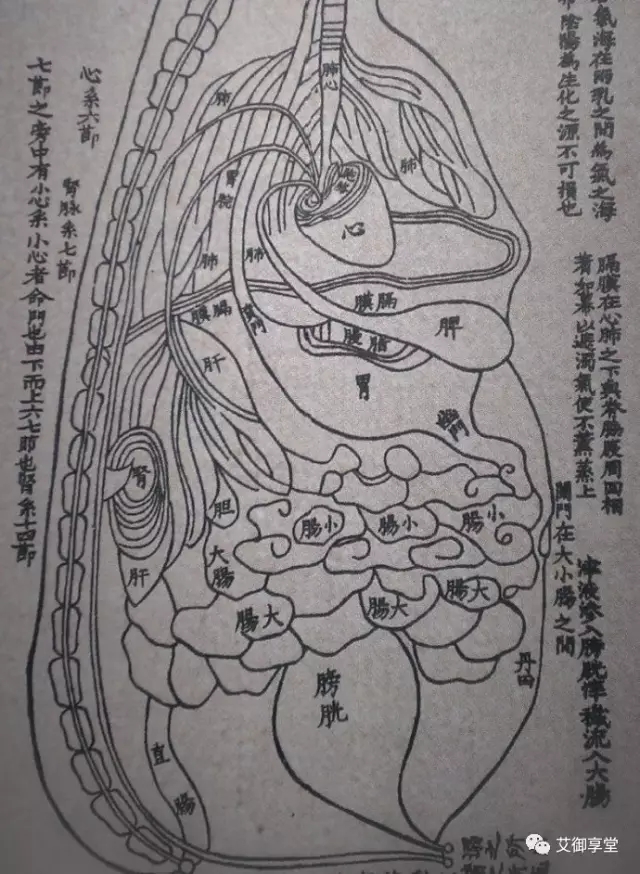 氣海在兩乳之間為氣之海
布陰陽為生化之源不可損也
膈膜在心肺之下與脊脇腹周回相
著如幕以遮濁氣使不薰蒸上
闌門在大小腸之間
津液滲入膀胱滓穢流入大腸
心系六節
腎脉系七節
七節之旁中有小心系小心者命門也由下而上六七節也腎系十四節
肺心
肺
肺
胃脘
心
肺
肺
膈膜
膈膜
賁門
脾
肝
胃
幽門
腎
胆
小腸
小腸
小腸
大腸
肝
大腸
大腸
大腸
丹田
膀胱
直腸
艾御享堂